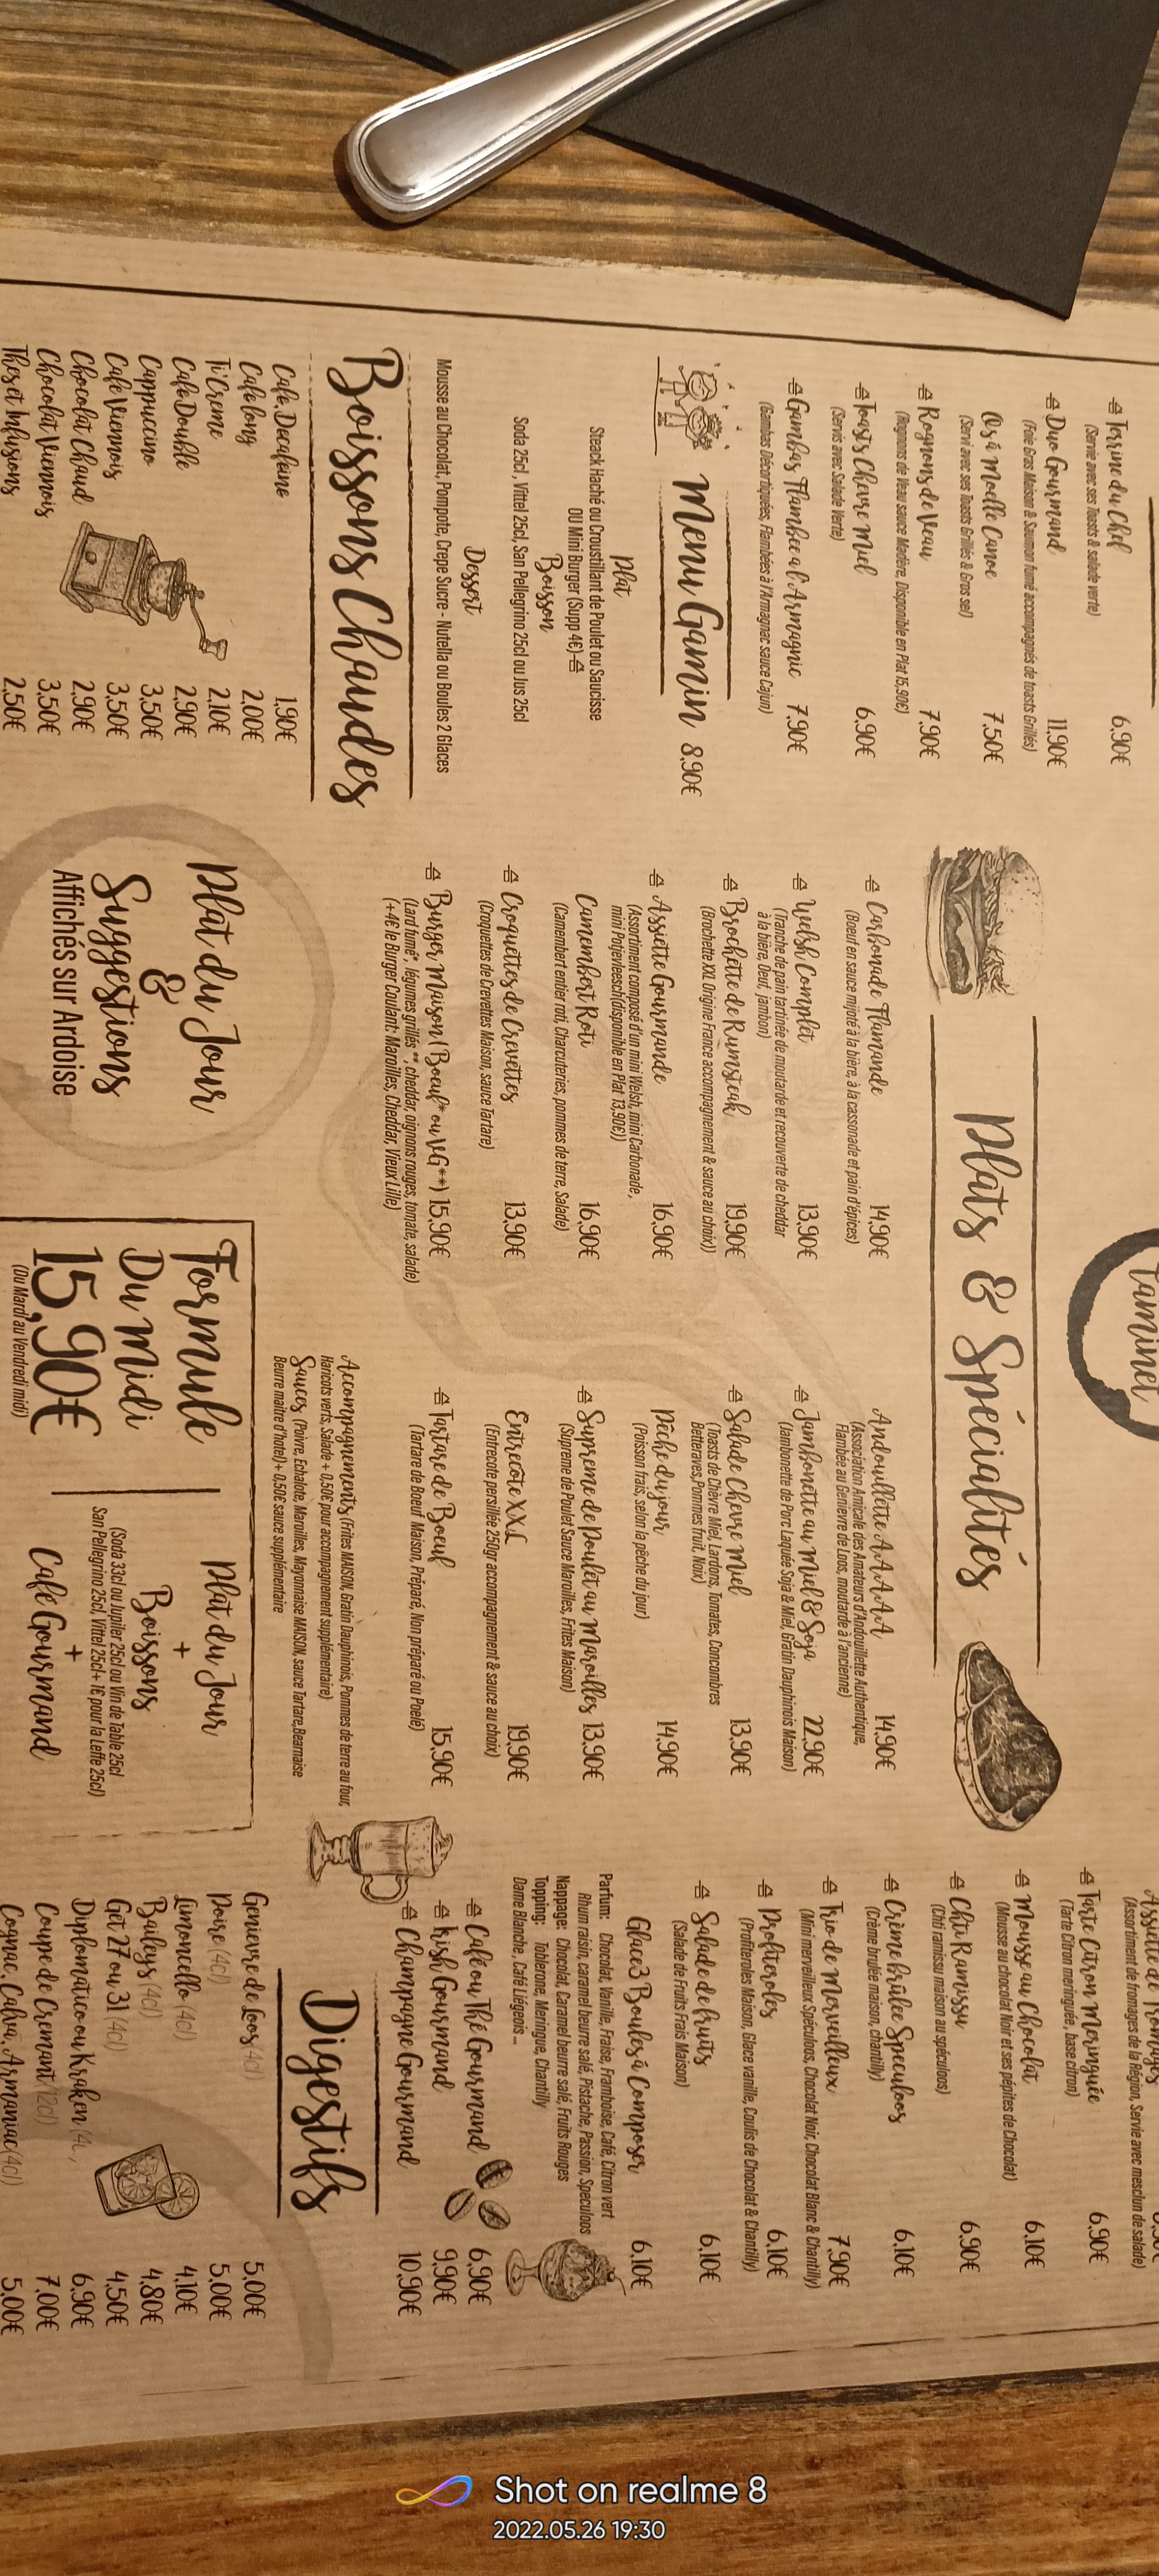 Taminet
Terrine du Chef 6,90€
(Servie avec ses Toasts & salade verte)
Duo Gourmand 11,90€
(Foie Gras Maison & Saumon fumé accompagnés de toasts Grillés)
Os à Moelle Canoe 7,50€
(Servi avec ses Toasts Grillés & Gros sel)
Rognons de Veau 7,90€
(Rognons de Veau sauce Madère, Disponible en Plat 15,90€)
Toasts Chevre Miel 6,90€
(Servis avec Salade Verte)
Gambas Flambee a l'Armagnic 7,90€
(Gambas Décortiquées, Flambées à l'Armagnac sauce Cajun)
Menu Gamin 8,90€
Plat
Steack Haché ou Croustillant de Poulet ou Saucisse
OU Mini Burger (Supp 4€)
Boisson
Soda 25cl, Vittel 25cl, San Pellegrino 25cl ou Jus 25cl
Dessert
Mousse au Chocolat, Pompote, Crepe Sucre - Nutella ou Boules 2 Glaces
Boissons Chaudes
Café, Decafeine 1,90€
Café long 2,00€
Ti'Creme 2,10€
Café Double 2,90€
Cappuccino 3,50€
Café Viennois 3,50€
Chocolat Chaud 2,90€
Chocolat Viennois 3,50€
Thes et Infusions 2,50€
Plats & Spécialités
Carbonade Flamande 14,90€
(Boeuf en sauce mijoté à la bière, à la cassonade et pain d'épices)
Welsh Complet 13,90€
(Tranche de pain tartinée de moutarde et recouverte de cheddar
à la bière, Oeuf, jambon)
Brochette de Rumsteak 19,90€
(Brochette XXL Origine France accompagnement & sauce au choix))
Assiette Gourmande 16,90€
(Assortiment composé d'un mini Welsh, mini Carbonade,
mini Potjevleesch(disponible en Plat 13,90€))
Camembert Roti 16,90€
(Camembert entier roti, Charcuteries, pommes de terre, Salade)
Croquettes de Crevettes 13,90€
(Croquettes de Crevettes Maison, sauce Tartare)
Burger Maison (Boeuf* ou VG**) 15,90€
(Lard fumé*, légumes grillés **, cheddar, oignons rouges, tomate, salade)
(+4€ le Burger Coulant: Maroilles, Cheddar, Vieux Lille)
Andouillette AAAAA 14,90€
(Association Amicale des Amateurs d'Andouillette Authentique,
Flambée au Genievre de Loos, moutarde à l'ancienne)
Jambonette au Miel & Soja 22,90€
(Jambonette de Porc Laquée Soja & Miel, Gratin Dauphinois Maison)
Salade Chevre Miel 13,90€
(Toasts de Chèvre Miel, Lardons, Tomates, Concombres
Betteraves,Pommes fruit, Noix)
Pêche du jour 14,90€
(Poisson frais, selon la pêche du jour)
Supreme de Poulet au Maroilles 13,90€
(Supreme de Poulet Sauce Maroilles, Frites Maison)
Entrecôte XXL 19,90€
(Entrecote persillée 250gr accompagnement & sauce au choix)
Tartare de Boeuf 15,90€
(Tartare de Boeuf Maison, Préparé, Non préparé ou Poelé)
Accompagnements (Frites MAISON, Gratin Dauphinois, Pommes de terre au four,
Haricots verts, Salade + 0,50€ pour accompagnement supplémentaire)
Sauces (Poivre, Echalote, Maroilles, Mayonnaise MAISON, sauce Tartare,Bearnaise
Beurre maitre d'hotel)+ 0,50€ sauce supplémentaire
Plat du Jour
&
Suggestions
Affichés sur Ardoise
Formule
Du Midi
15,90€
(Du Mardi au Vendredi midi)
Plat du Jour
+
Boissons
(Soda 33cl ou Jupiler 25cl ou Vin de Table 25cl
San Pellegrino 25cl, Vittel 25cl+ 1€ pour la Leffe 25cl)
+
Café Gourmand
Assiette de Fromages
(Assortiment de fromages de la Région, Servie avec mesclun de salade)
Tarte Citron Meringuée 6,90€
(Tarte Citron meringuée, base citron)
Mousse au Chocolat 6,10€
(Mousse au chocolat Noir et ses pépites de Chocolat)
Chti Ramissu 6,90€
(Chti ramissu maison au spéculoos)
Crème brûlée Speculoos 6,10€
(Crème brulée maison, chantilly)
Trio de Merveilleux 7,90€
(Mini merveilleux Spéculoos, Chocolat Noir, Chocolat Blanc & Chantilly)
Profiteroles 6,10€
(Profiteroles Maison, Glace vanille, Coulis de Chocolat & Chantilly)
Salade de fruits 6,10€
(Salade de Fruits Frais Maison)
Glace 3 Boules à Composer 6,10€
Parfum: Chocolat, Vanille, Fraise, Framboise, Café, Citron vert
Rhum raisin, caramel beurre salé, Pistache, Passion, Speculoos
Nappage: Chocolat, Caramel beurre salé, Fruits Rouges
Topping: Toblerone, Meringue, Chantilly
Dame Blanche, Café Liégeois...
Café ou Thé Gourmand 6,90€
Irish Gourmand 9,90€
Champagne Gourmand 10,90€
Digestifs
Genievre de Loos(4cl) 5,00€
Poire (4cl) 5,00€
Limoncello (4cl) 4,10€
Baileys (4cl) 4,80€
Get 27 ou 31 (4cl) 4,50€
Diplomatico ou Kraken 6,90€
Coupe de Cremant (12cl) 7,00€
Cognac, Calva, Armaniac(4cl) 5,00€
Shot on realme 8
2022.05.26 19:30